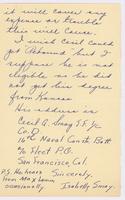 it will cause any
expense or trouble
this will cause.
I wish Cecil could
get Returned but I
suppose he is not
eligible as he did
not get his degree
from Kansas
His address is
Cecil A. Smay S.F. 1/c
Co. D.
16th Naval Const. Batt
c/o Fleet P.O.
San Francisco, Cal.
P.S. He hears Sincerely,
from Max & wann
occasionally. Isabelle Smay.